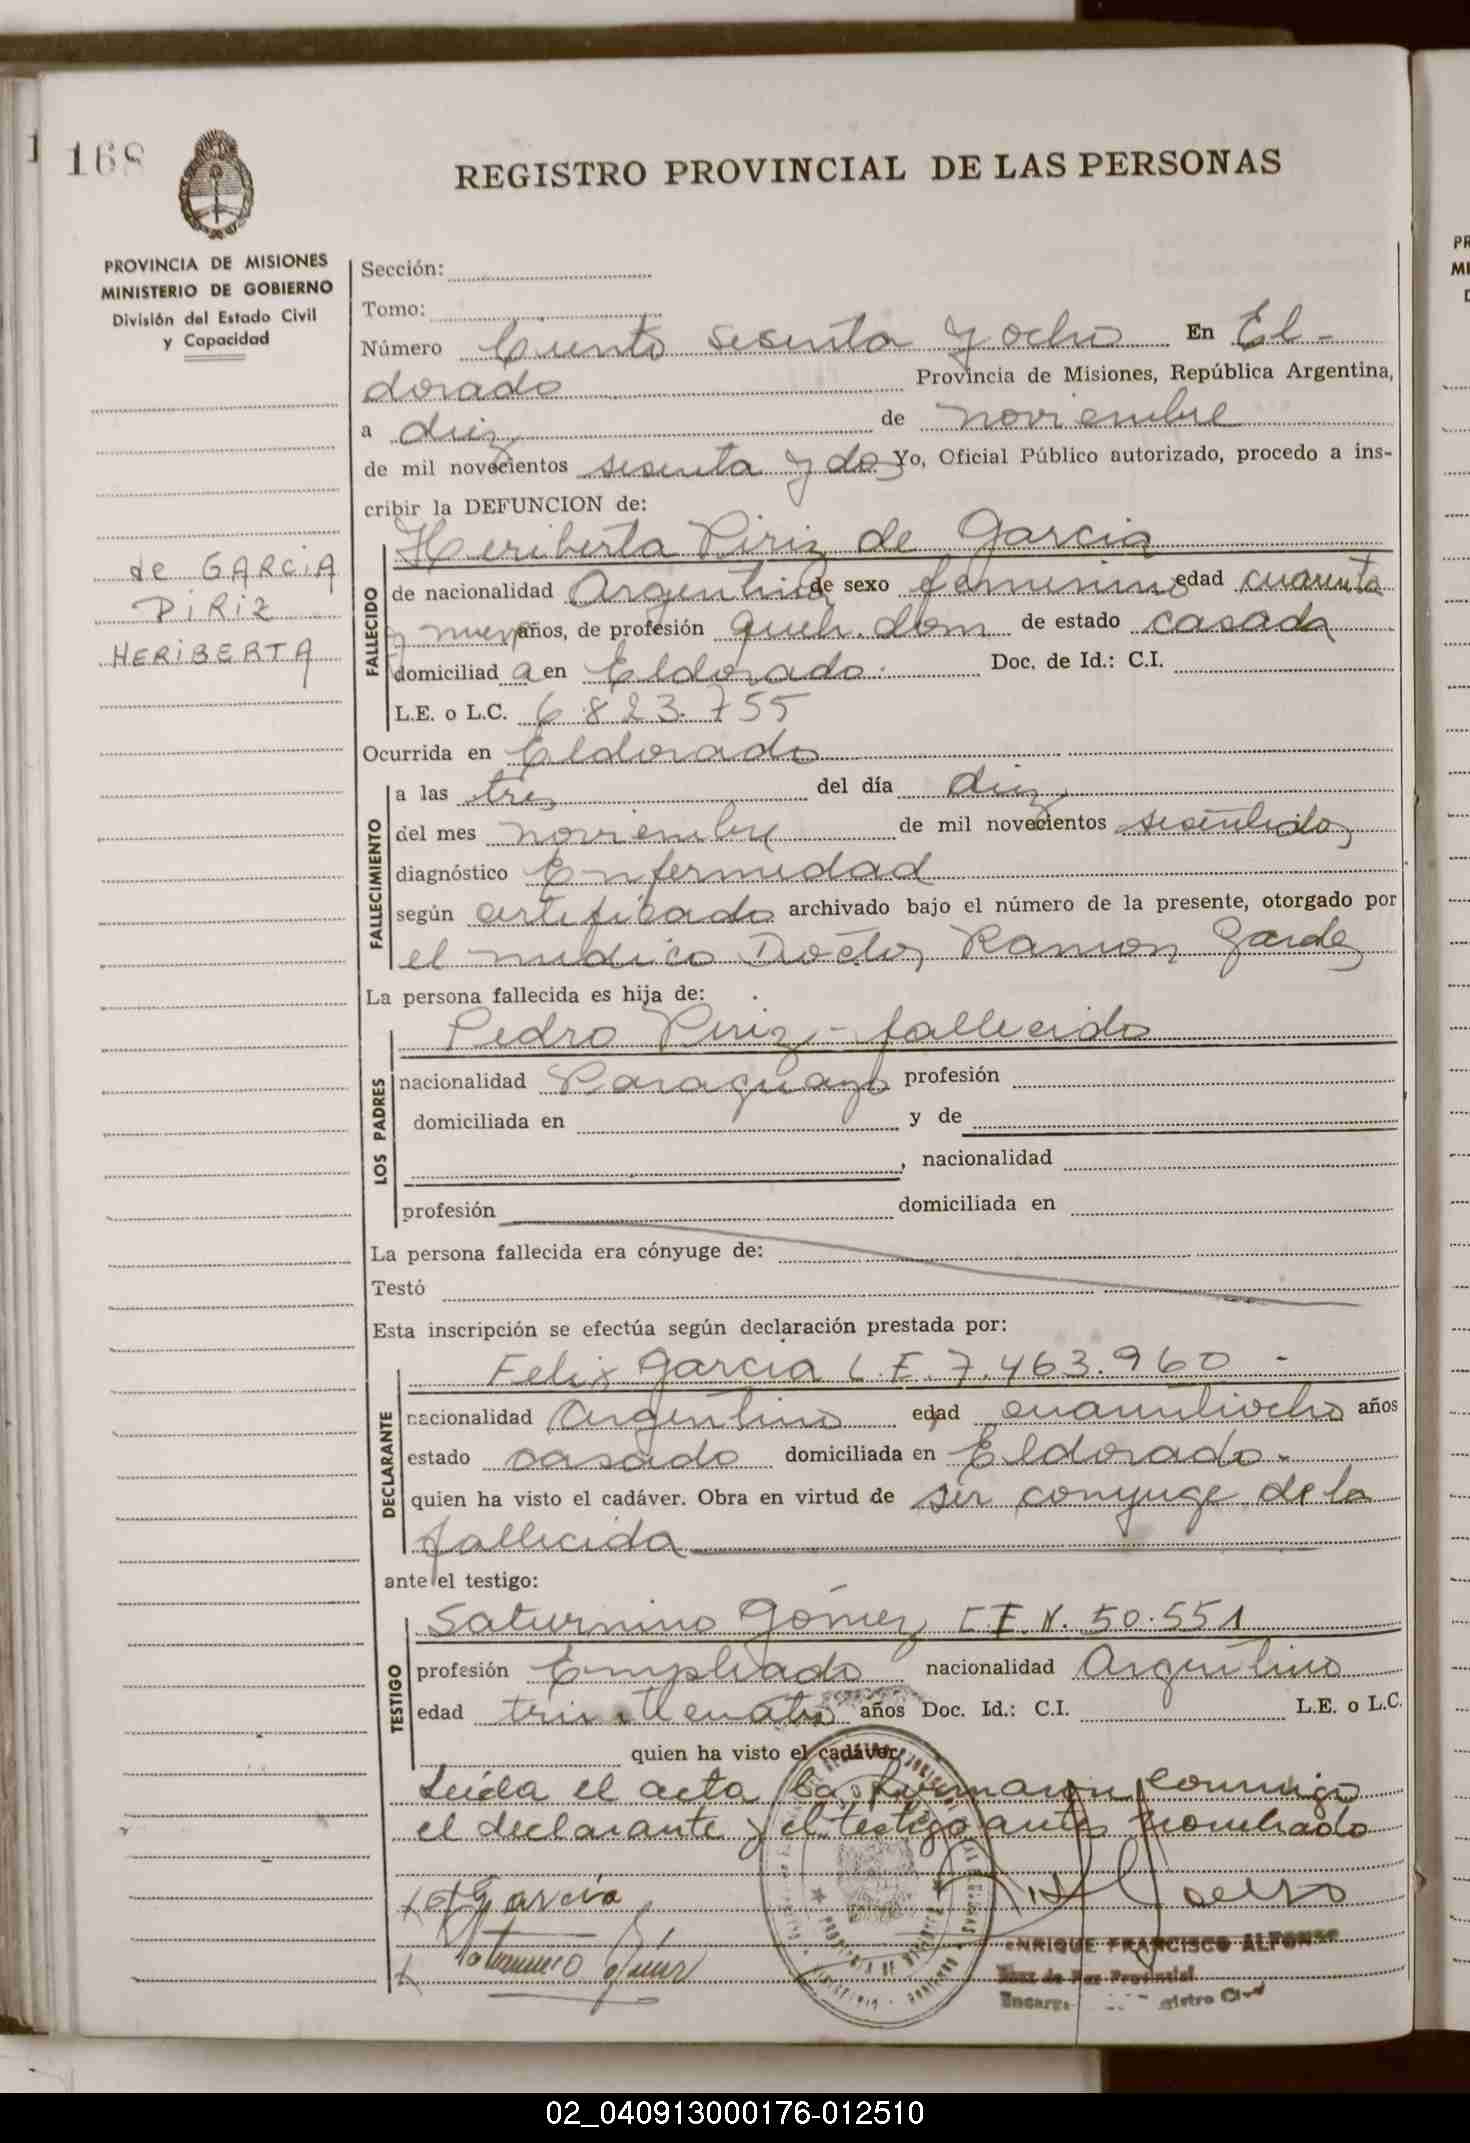 168
REGISTRO PROVINCIAL DE LAS PERSONAS
PROVINCIA DE MISIONES
MINISTERIO DE GOBIERNO
División del Estado Civil
y Capacidad
de GARCIA
PIRIZ
HERIBERTA
Sección:
Tomo:
Número Ciento sesenta y ocho En El-
dorado Provincia de Misiones, República Argentina,
a diez de noviembre
de mil novecientos sesenta y dos Yo, Oficial Público autorizado, procedo a ins-
cribir la DEFUNCION de:
FALLECIDO
Heriberta Piriz de Garcia
de nacionalidad Argentina de sexo femenino edad cuarenta
y nueve años, de profesión queh. dom de estado casada
domiciliad a en Eldorado. Doc. de Id.: C.I.
L.E. o L.C. 6.823.755
Ocurrida en Eldorado
FALLECIMIENTO
a las tres del día diez
del mes noviembre de mil novecientos sesentidos
diagnóstico Enfermedad
según certificado archivado bajo el número de la presente, otorgado por
el medico Doctor Ramon
La persona fallecida es hija de:
LOS PADRES
Pedro Piriz - fallecido
nacionalidad Paraguayo profesión
domiciliada en y de
, nacionalidad
profesión domiciliada en
La persona fallecida era cónyuge de:
Testó
Esta inscripción se efectúa según declaración prestada por:
DECLARANTE
Felix Garcia L.E. 7.463.960 -
nacionalidad Argentino edad cuarentiocho años
estado casado domiciliada en Eldorado.-
quien ha visto el cadáver. Obra en virtud de ser conyuge de la
fallecida
ante el testigo:
TESTIGO
Saturnino Gómez C.I. N. 50.551
profesión Empleado nacionalidad Argentino
edad años Doc. Id.: C.I. L.E. o L.C.
quien ha visto el cadáver
Leida el acta la firmaron conmigo
el declarante y el testigo antes nombrado
F Garcia
Saturnino Gómez
ENRIQUE FRANCISCO ALFONSO
Juez de Paz Provincial
02_040913000176-012510